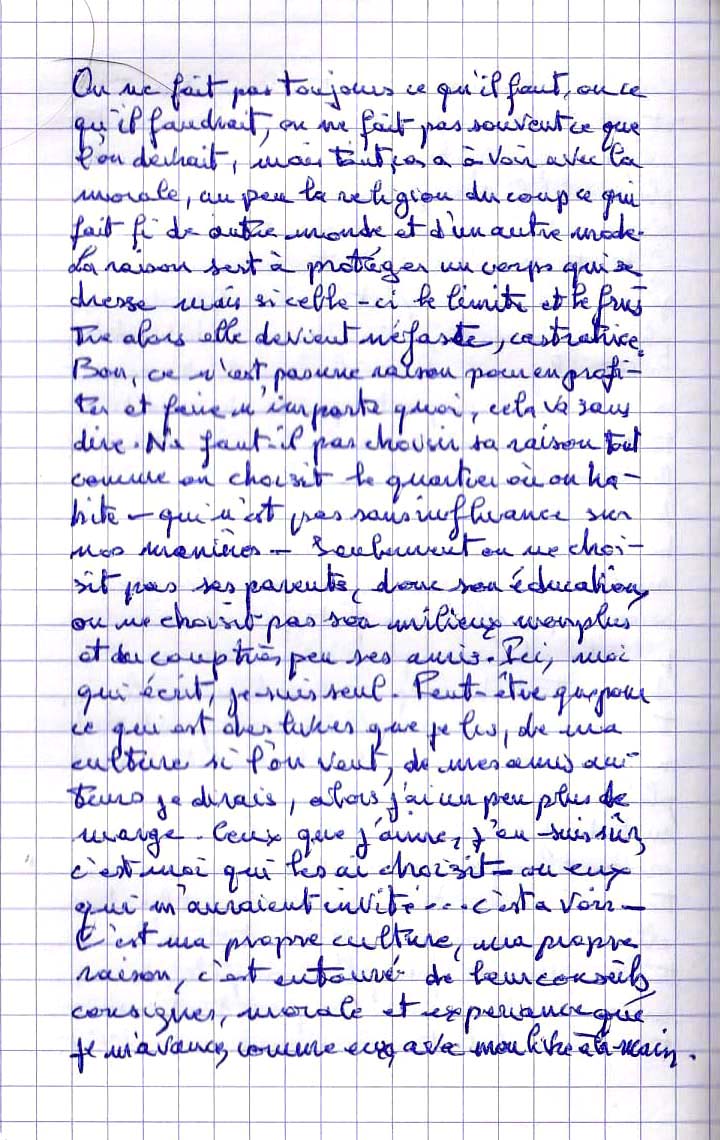 On ne fait pas toujours ce qu'il faut, ou ce
qu'il faudrait, on ne fait pas souvent ce que
l'on devrait, mais tout ça a à voir avec la
morale, un peu la religion du coup ce qui
fait fi de autre monde et d'un autre mode.
La raison sert à protéger un corps qui se
dresse mais si celle-ci le limite et le frus
tre alors elle devient néfaste, castratrice.
Bon, ce n'est pas une raison pour en profi-
ter et faire n'importe quoi, cela va sans
dire. Ne faut-il pas choisir sa raison tout
comme on choisit le quartier où on ha-
bite - qui n'est pas sans influence sur
nos manières - Seulement on ne choi-
sit pas ses parents, donc son éducation,
on ne choisit pas son milieux non plus
et du coup très peu ses amis. Ici, moi
qui écrit, je suis seul. Peut-être que pour
ce qui est des livres que je lis, de ma
culture si l'on veut, de mes amis au-
teurs je dirais, alors j'ai un peu plus de
marge. Ceux que j'aime, j'en suis sûr,
c'est moi qui les ai choisit - ou eux
qui m'auraient invité... c'est a voir -
C'est ma propre culture, ma propre
raison, c'est entouré de leur conseils,
consignes, morale et experiance que
je m'avance, comme eux, avec mon livre à la main.